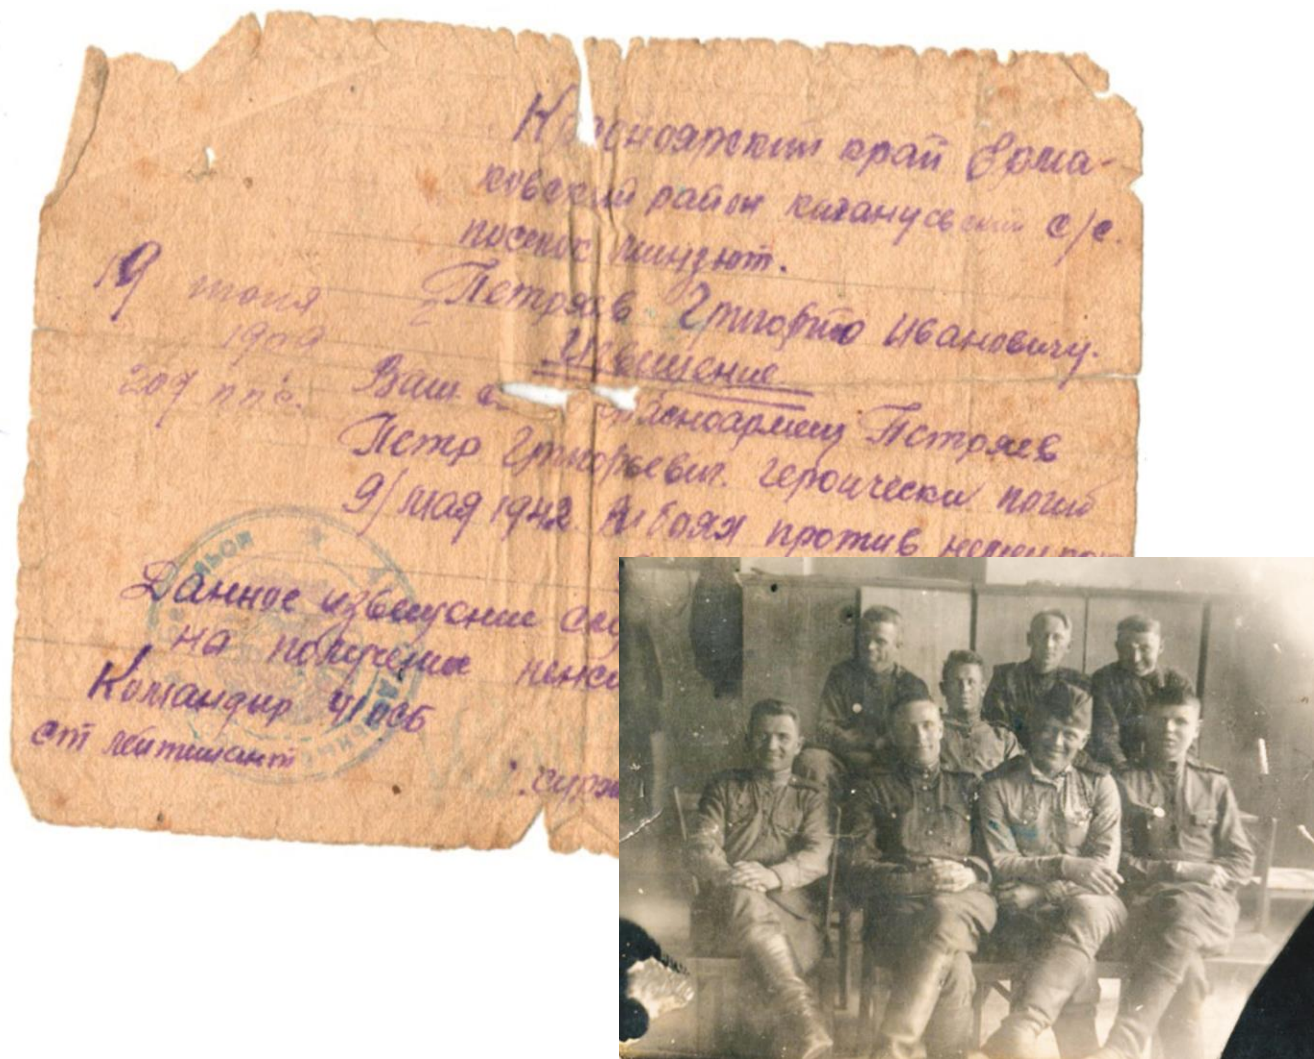 Красноярский край Ерма-
ковский район с/с.
19 июня
Петряев Григорию Ивановичу.
1909
209 ппс.
Извещение
Ваш красноармеец Петряев
Петр Григорьевич. героически погиб
9/ мая 1942. в боях против
Данное извещение
на получение
Командир 41 осб
ст лейтинант